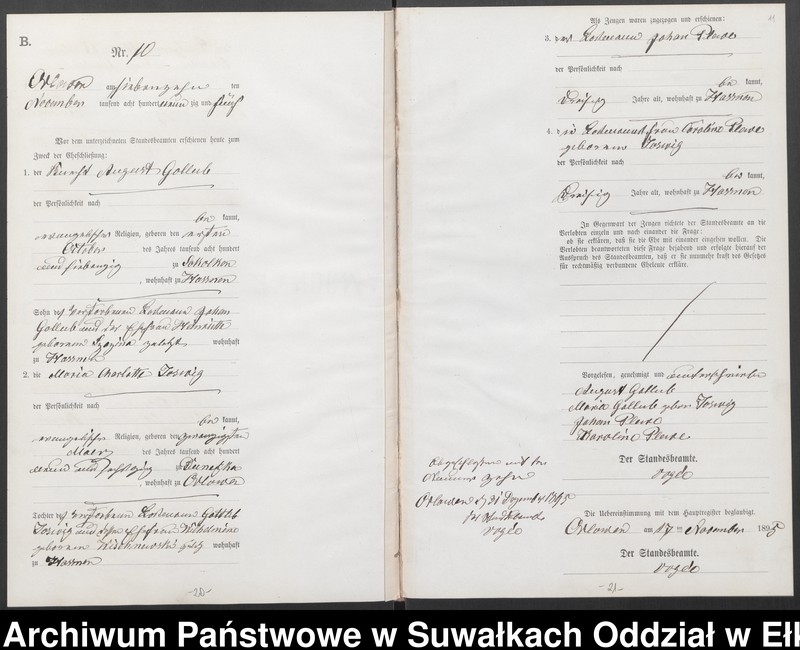 B.
Nr. 10
Orlowen am siebenzehn ten
November tausend acht hundert neun zig und fünf
Vor dem unterzeichneten Standesbeamten erschienen heute zum
Zweck der Eheschließung:
1. der Knecht August Gollub
der Persönlichkeit nach
be kannt,
evangelischer Religion, geboren den ersten
October des Jahres tausend acht hundert
und siebenzig zu Sokolken
, wohnhaft zu Hassnen
Sohn des verstorbenen Losmann Johann
Gollub und der Ehefrau Henriette
geborenen zuletzt wohnhaft
zu Hassnen
2. die Maria Charlotte Joswig
der Persönlichkeit nach
be kannt,
evangelischer Religion, geboren den zwanzigsten
Maerz des Jahres tausend acht hundert
neun und sechszig zu Duneyken
wohnhaft zu Orlowen
Tochter des verstorbenen Losmann Gottlieb
Joswig und dessen Ehefrau Wilhelmine
geborenen wohnhaft
zu Hassnen
-20-
11
Als Zeugen waren zugezogen und erschienen:
3. der Losmann Johan Plewe
der Persönlichkeit nach
be kannt,
dreißig Jahre alt, wohnhaft zu Hassnen
4. die Losmannsfrau Caroline Plewe
geborene Joswig
der Persönlichkeit nach
be kannt,
dreißig Jahre alt, wohnhaft zu Hassnen
In Gegenwart der Zeugen richtete der Standesbeamte an die
Verlobten einzeln und nach einander die Frage:
ob sie erklären, daß sie die Ehe mit einander eingehen wollen. Die
Verlobten beantworteten diese Frage bejahend und erfolgte hierauf der
Ausspruch des Standesbeamten, daß er sie nunmehr kraft des Gesetzes
für rechtmäßig verbundene Eheleute erkläre.
Vorgelesen, genehmigt und unterschrieben
August Gollub
Maria Gollub geboren Joswig
Johan Plewe
Karoline Plewe
Der Standesbeamte.
Abgeschlossen mit der
Nummer zehn
Orlowen d 31 Dezember 1895
Der Standesbeamte
Die Uebereinstimmung mit dem Hauptregister beglaubigt.
Orlowen am 17 ten November 1895
Der Standesbeamte.
-21-
Archiwum Państwowe w Suwałkach Oddział w Ełk